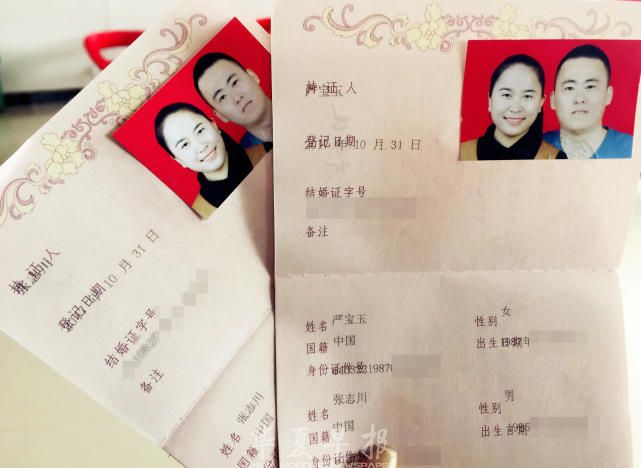 持证人
登记日期 10 月 31 日
结婚证字号
备注
姓名 张志川
国籍 中国
持证人
严宝玉
登记日期 10 月 31 日
结婚证字号
备注
姓名 严宝玉 性别 女
国籍 中国 出生日期
身份证件号
姓名 张志川 性别 男
国籍 中国 出生日期
身份证件号
华夏早报